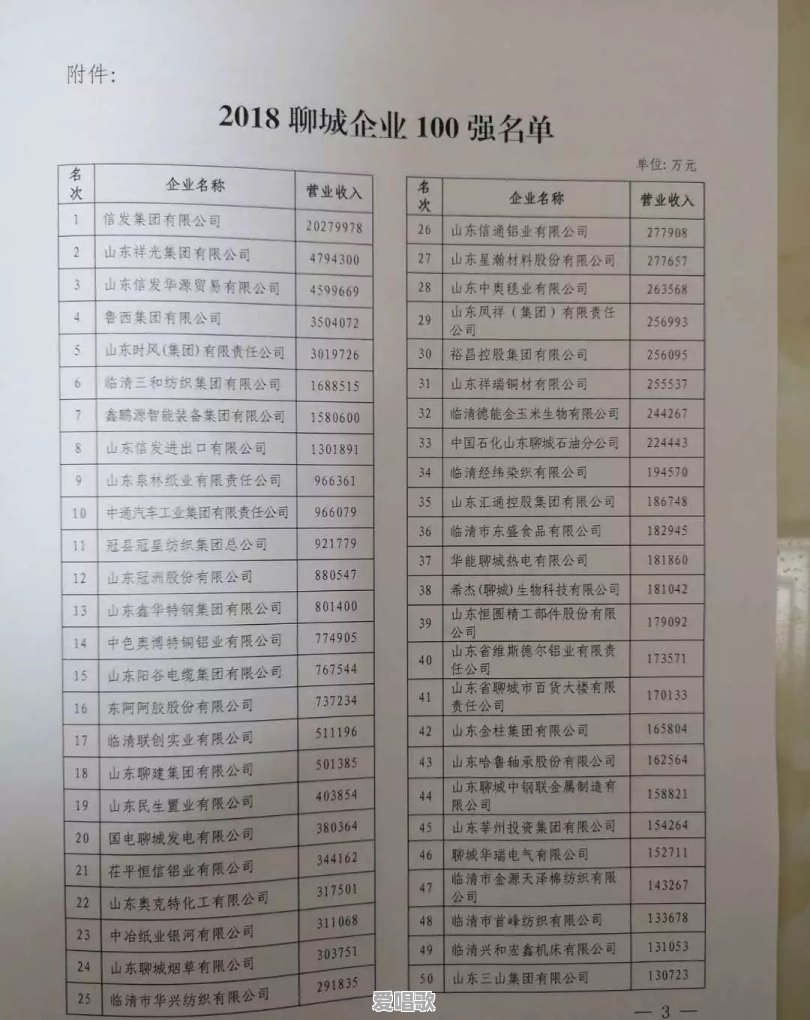 附件:
2018 聊城企业 100 强名单
单位: 万元
名次 企业名称 营业收入
1 信发集团有限公司 20279978
2 山东祥光集团有限公司 4794300
3 山东信发华源贸易有限公司 4599669
4 鲁西集团有限公司 3504072
5 山东时风(集团)有限责任公司 3019726
6 临清三和纺织集团有限公司 1688515
7 鑫鹏源智能装备集团有限公司 1580600
8 山东信发进出口有限公司 1301891
9 山东泉林纸业有限责任公司 966361
10 中通汽车工业集团有限责任公司 966079
11 冠县冠星纺织集团总公司 921779
12 山东冠洲股份有限公司 880547
13 山东鑫华特钢集团有限公司 801400
14 中色奥博特铜铝业有限公司 774905
15 山东阳谷电缆集团有限公司 767544
16 东阿阿胶股份有限公司 737234
17 临清联创实业有限公司 511196
18 山东聊建集团有限公司 501385
19 山东民生置业有限公司 403854
20 国电聊城发电有限公司 380364
21 茌平恒信铝业有限公司 344162
22 山东奥克特化工有限公司 317501
23 中冶纸业银河有限公司 311068
24 山东聊城烟草有限公司 303751
25 临清市华兴纺织有限公司 291835
名次 企业名称 营业收入
26 山东信通铝业有限公司 277908
27 山东星瀚材料股份有限公司 277657
28 山东中奥毯业有限公司 263568
29 山东凤祥（集团）有限责任
公司 256993
30 裕昌控股集团有限公司 256095
31 山东祥瑞铜材有限公司 255537
32 临清德能金玉米生物有限公司 244267
33 中国石化山东聊城石油分公司 224443
34 临清经纬染织有限公司 194570
35 山东汇通控股集团有限公司 186748
36 临清市东盛食品有限公司 182945
37 华能聊城热电有限公司 181860
38 希杰(聊城)生物科技有限公司 181042
39 山东恒圆精工部件股份有限
公司 179092
40 山东省维斯德尔铝业有限责
任公司 173571
41 山东省聊城市百货大楼有限
责任公司 170133
42 山东金柱集团有限公司 165804
43 山东哈鲁轴承股份有限公司 162564
44 山东聊城中钢联金属制造有
限公司 158821
45 山东莘州投资集团有限公司 154264
46 聊城华瑞电气有限公司 152711
47 临清市金源天泽棉纺织有限
公司 143267
48 临清市首峰纺织有限公司 133678
49 临清兴和宏鑫机床有限公司 131053
50 山东三山集团有限公司 130723
— 3 —
爱唱歌